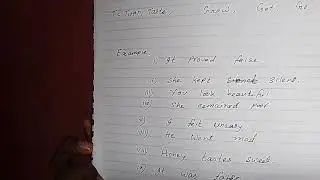 to Turn, Taste, Grow, Get
Example
i) It proved false
ii) She kept silent.
iii) You look beautiful
iv) She remained poor
v) I felt uneasy
vi) He went mad
vii) Honey tastes sweet
It was